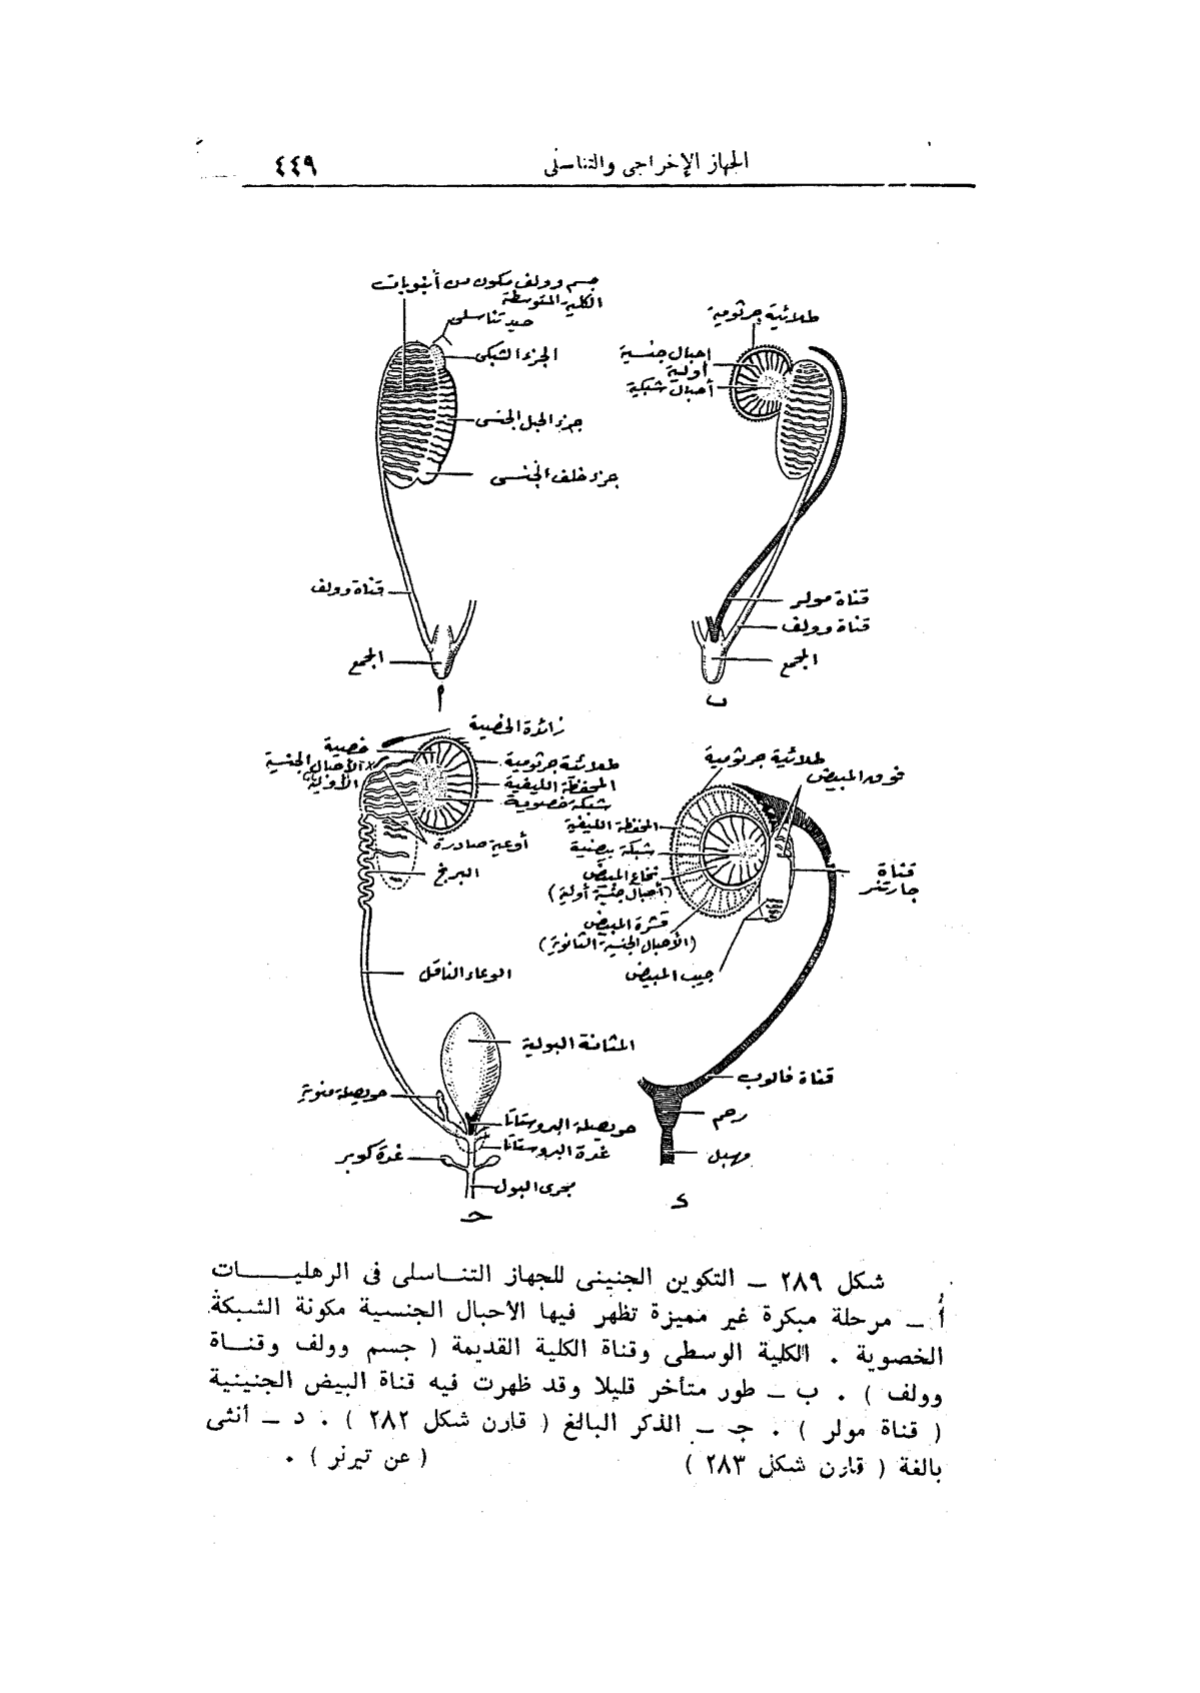 الجهاز الإخراجى والتناسلى ٤٤٩
جسم وولف مكون من أنبوبات
الكلية المتوسطة
حيد تناسلى
الجزء الشبكى
جزء الحبل الجنسى
جزء خلف الجنسى
قناة وولف
المجمع
أ
طلائية جرثومية
احبال جنسية
اولية
أحبال شبكية
قناة مولر
قناة وولف
المجمع
ب
زائدة الخصية
خصية
الأحبال الجنسية
الأولية
طلائية جرثومية
المحفظة الليفية
شبكة خصوية
أوعية صادرة
البربخ
الوعاء الناقل
المثانة البولية
حويصلة منوية
حويصلة البروستاتا
غدة البروستاتا
غدة كوبر
مجرى البول
جـ
طلائية جرثومية
فوق المبيض
المحفظة الليفية
شبكة بيضية
نخاع المبيض
(أحبال جنسية أولية)
قناة
جارتنر
قشرة المبيض
(الأحبال الجنسية الثانوية)
جيب المبيض
قناة فالوب
رحم
مهبل
د
شكل ٢٨٩ ــ التكوين الجنينى للجهاز التنــاسلى فى الرهليــــــات
أ ــ مرحلة مبكرة غير مميزة تظهر فيها الأحبال الجنسية مكونة الشبكة
الخصوية . الكلية الوسطى وقناة الكلية القديمة ( جسم وولف وقنــاة
وولف ) . ب ــ طور متأخر قليلا وقد ظهرت فيه قناة البيض الجنينية
( قناة مولر ) . جـ ــ الذكر البالغ ( قارن شكل ٢٨٢ ) . د ــ أنثى
بالغة ( قارن شكل ٢٨٣ ) ( عن تيرنر ) .